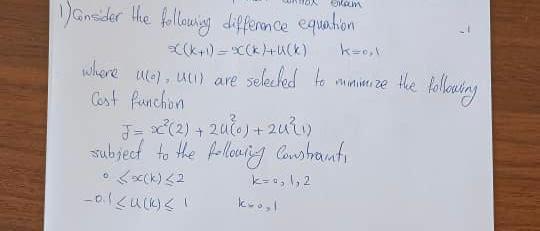 exam
1) Consider the following difference equation
-1
x(k+1) = x(k) + u(k) k=0,1
where u(0), u(1) are selected to minimize the following
Cost function
J = x²(2) + 2u²(0) + 2u²(1)
subject to the following Constraints
0 ≤ x(k) ≤ 2 k=0,1,2
-0.1 ≤ u(k) ≤ 1 k=0,1